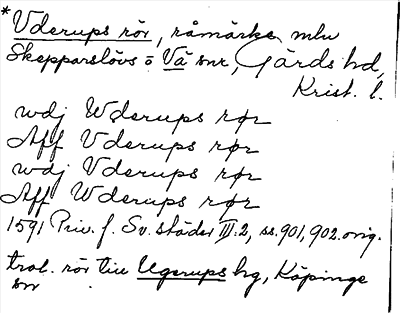 * Vderups rör, råmärke mlu
Skepparslövs o Vä snr, Gärds hd,
Krist. l.
wdj Wderups rør
Aff Vderups rør
wdj Vderups rør
Aff Wderups rør
1591 Priv. f. Sv. städer III:2, ss. 901, 902. orig.
trol. rör till Ugerups hg, Köpinge
sn